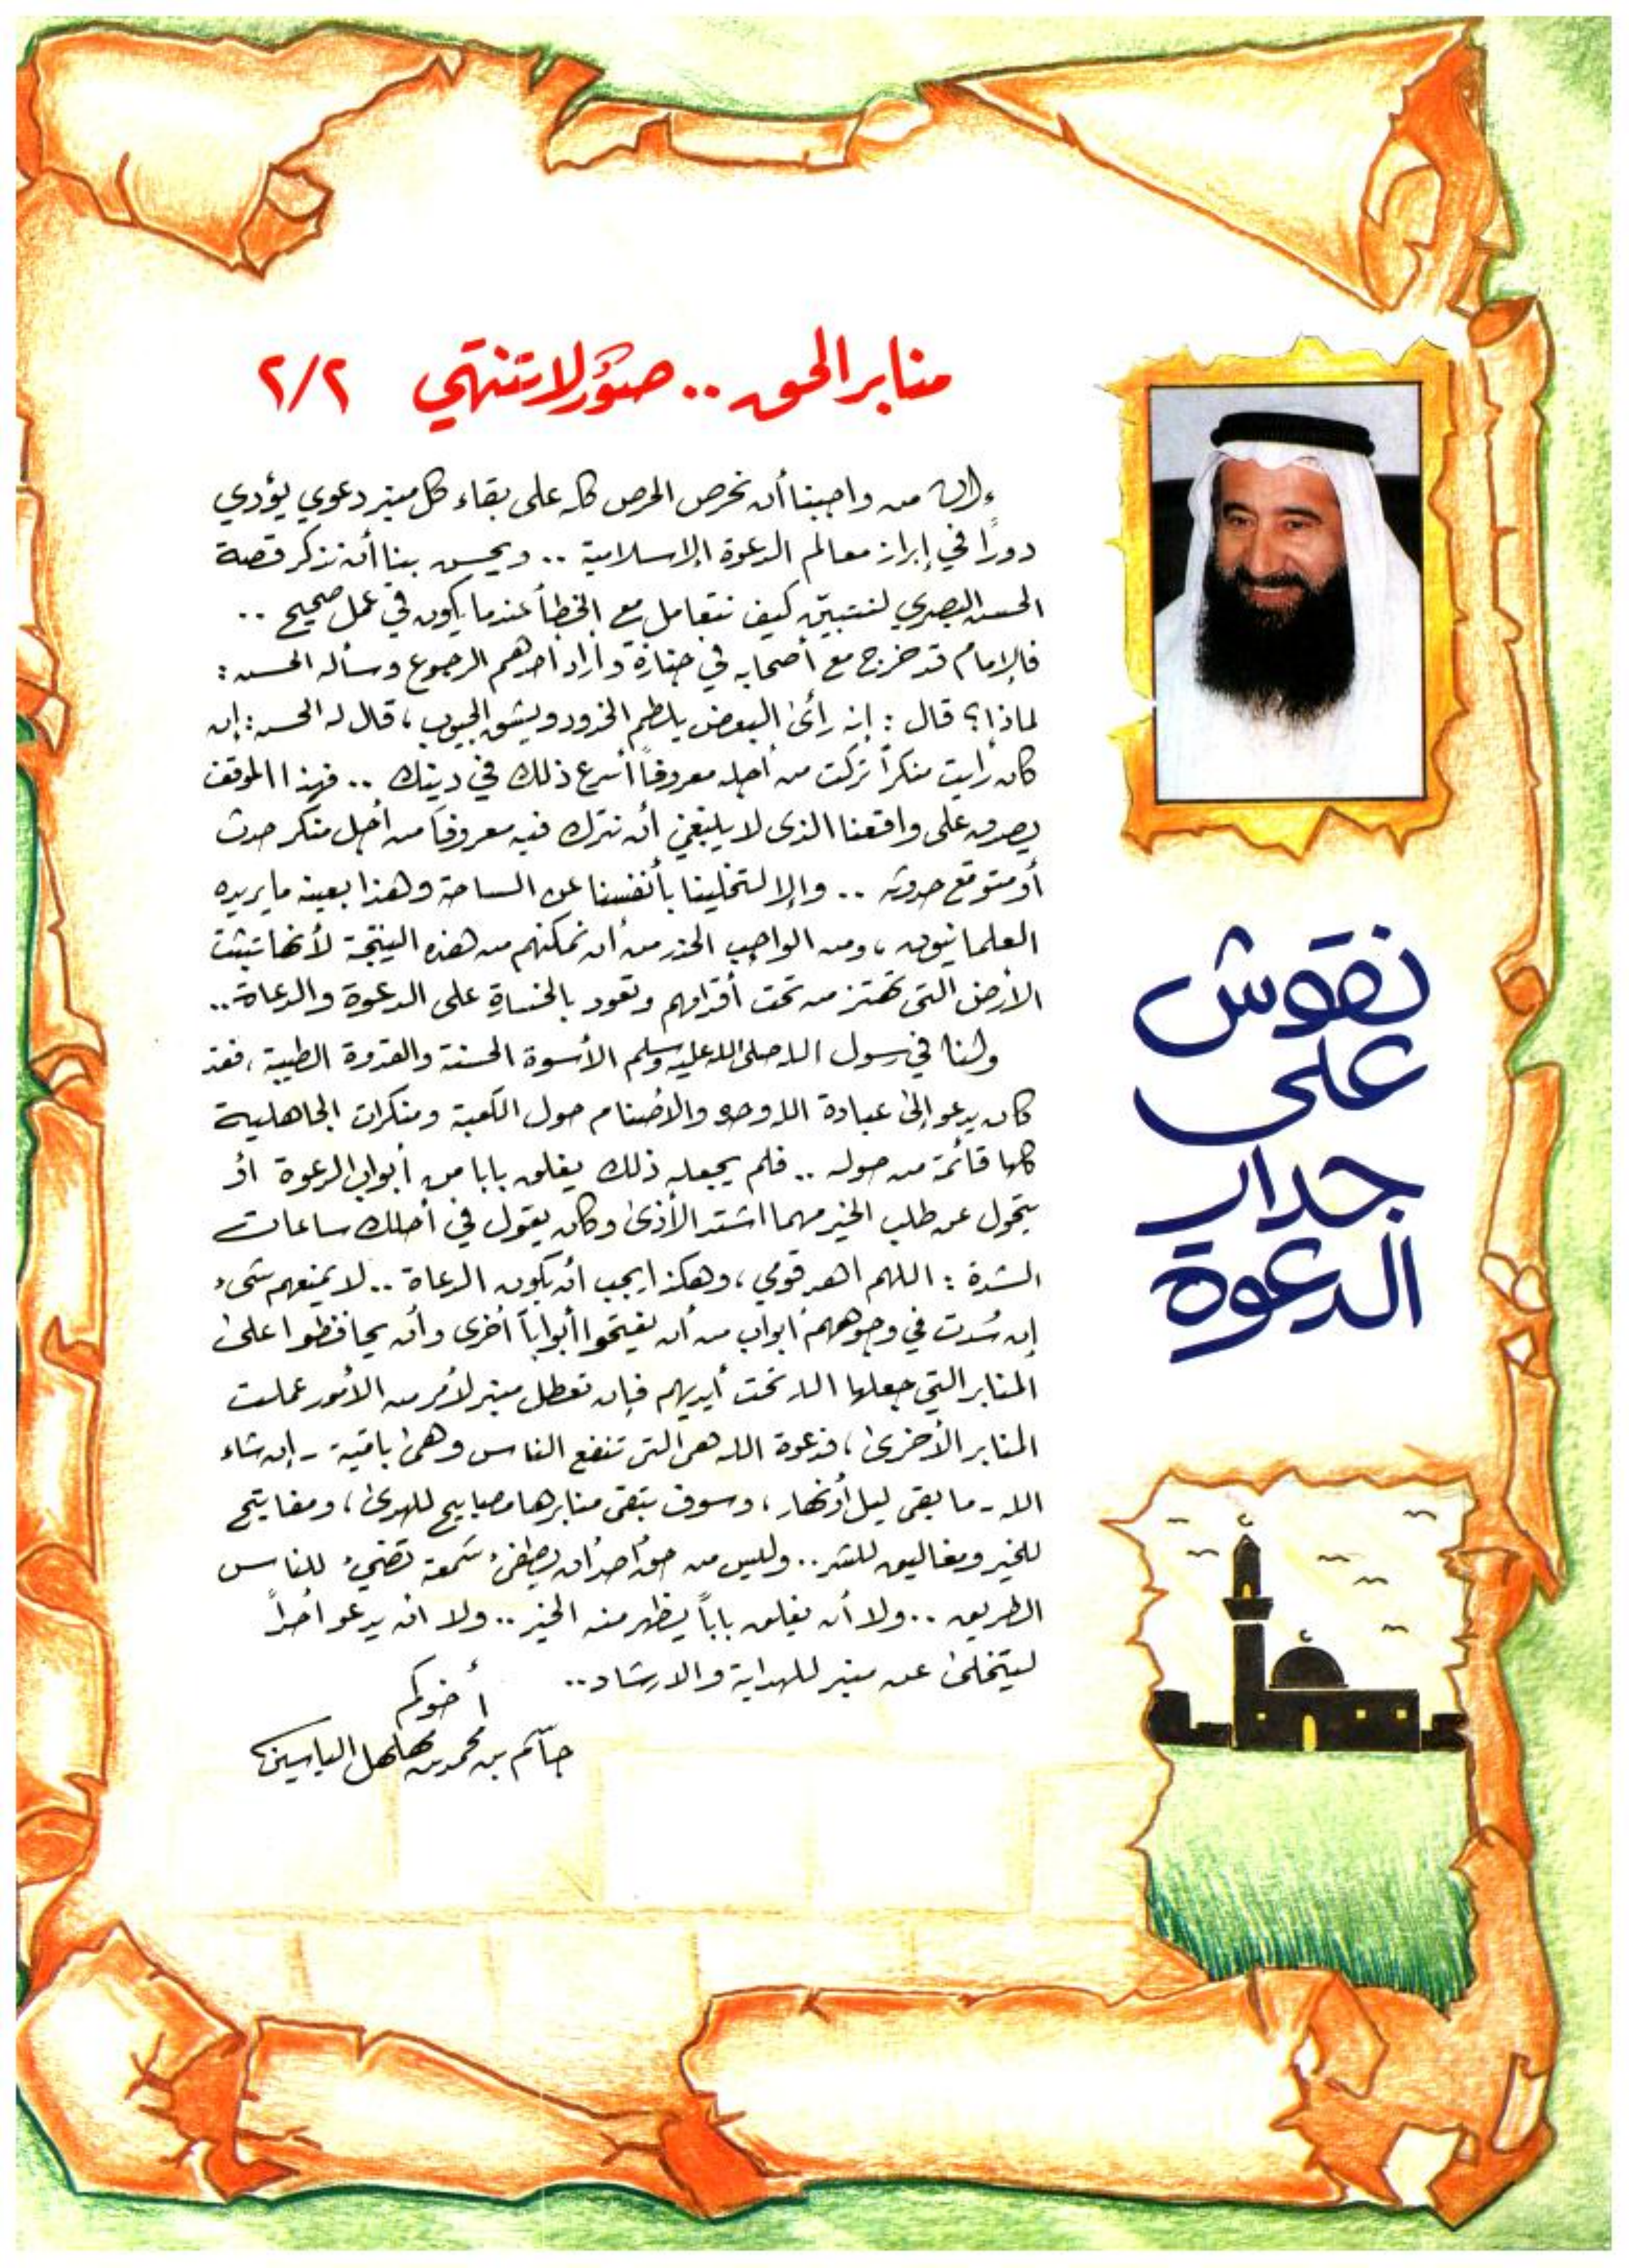 منابر الحق .. صور لا تنتهي ٢/٢
وإن من واجبنا أن نحرص الحرص كله على بقاء كل منبر دعوي يؤدي
دورًا في إبراز معالم الدعوة الإسلامية .. ويحسن بنا أن نذكر قصة
الحسن البصري لنتبين كيف نتعامل مع الخطأ عندما يكون في عمل صحيح ..
فالإمام قد خرج مع أصحابه في جنازة وأراد أحدهم الرجوع وسأله الحسن :
لماذا؟ قال : إنه رأى البعض يلطم الخدود ويشق الجيوب ، قال له الحسن : إن
كان رأيت منكراً تركت من أجله معروفاً أسرع ذلك في دينك .. فهذا الموقف
يصدق على واقعنا الذي لا ينبغي أن نترك فيه معروفاً من أجل منكر حدث
أو متوقع حدوثه .. وإلا لتخلينا بأنفسنا عن الساحة وهذا بعينه ما يريده
العلمانيون ، ومن الواجب الحذر من أن نمكنهم من هذه النتيجة لأنها تثبت
الأرض التي تهتز من تحت أقدامهم وتعود بالخسارة على الدعوة والدعاة ..
ولنا في رسول الله صلى الله عليه وسلم الأسوة الحسنة والقدوة الطيبة ، فقد
كان يدعو إلى عبادة الله وحده والأصنام حول الكعبة ومنكرات الجاهلية
كلها قائمة من حوله .. فلم يجعله ذلك يغلق بابا من أبواب الدعوة أو
يتحول عن طلب الخير مهما اشتد الأذى وكان يقول في أحلك ساعات
الشدة : اللهم اهد قومي ، وهكذا يجب أن يكون الدعاة .. لا يمنعهم شيء
إن سُدت في وجوههم أبواب من أن يفتحوا أبواباً أخرى وأن يحافظوا على
المنابر التي جعلها الله تحت أيديهم فإن تعطل منبر لأمر من الأمور عملت
المنابر الأخرى ، فدعوة الله هي التي تنفع الناس وهي باقية - إن شاء
الله - ما بقي ليل أو نهار ، وسوف تبقى منابرها مصابيح للهدى ، ومفاتيح
للخير ومغاليق للشر .. وليس من حق أحد أن يطفئ شمعة تضيء للناس
الطريق .. ولا أن يغلق باباً يظهر منه الخير .. ولا أن يدعو أحداً
ليتخلى عن منبر للهداية والارشاد ..
أخوكم
جاسم بن محمد بن مهلهل الياسين
نقوش
على
جدار
الدعوة